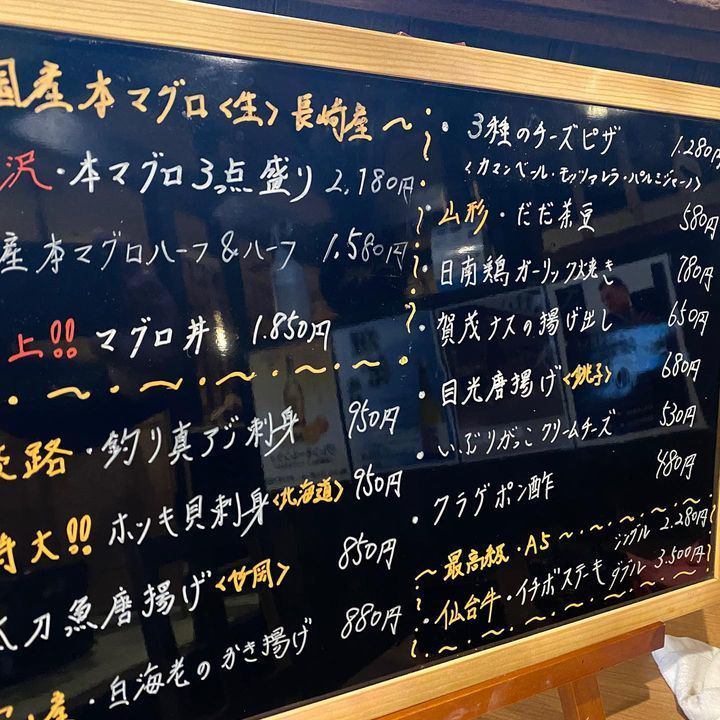 国産本マグロ〈生〉長崎産〜
沢・本マグロ3点盛り 2,180円
産本マグロハーフ&ハーフ 1,580円
上!! マグロ丼 1,850円
路・釣り真アジ刺身 950円
特大!! ホッキ貝刺身〈北海道〉950円
太刀魚唐揚げ〈竹岡〉 850円
産・白海老のかき揚げ 880円
・3種のチーズピザ 1,280円
〈カマンベール・モッツァレラ・パルミジャーノ〉
・山形・だだ茶豆 580円
・日南鶏ガーリック焼き 780円
・賀茂ナスの揚げ出し 650円
・目光唐揚げ〈銚子〉 680円
・いぶりがっこクリームチーズ 530円
・クラゲポン酢 480円
〜最高級・A5〜 シングル 2,280円
仙台牛・イチボステーキ ダブル 3,500円